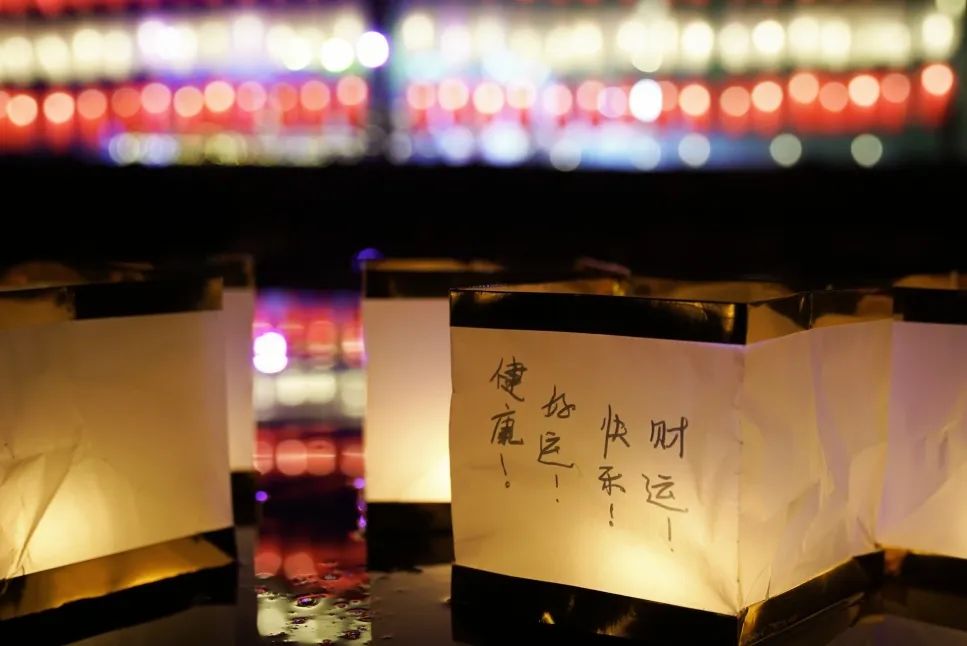 健康！
好运！
快乐！
财运！